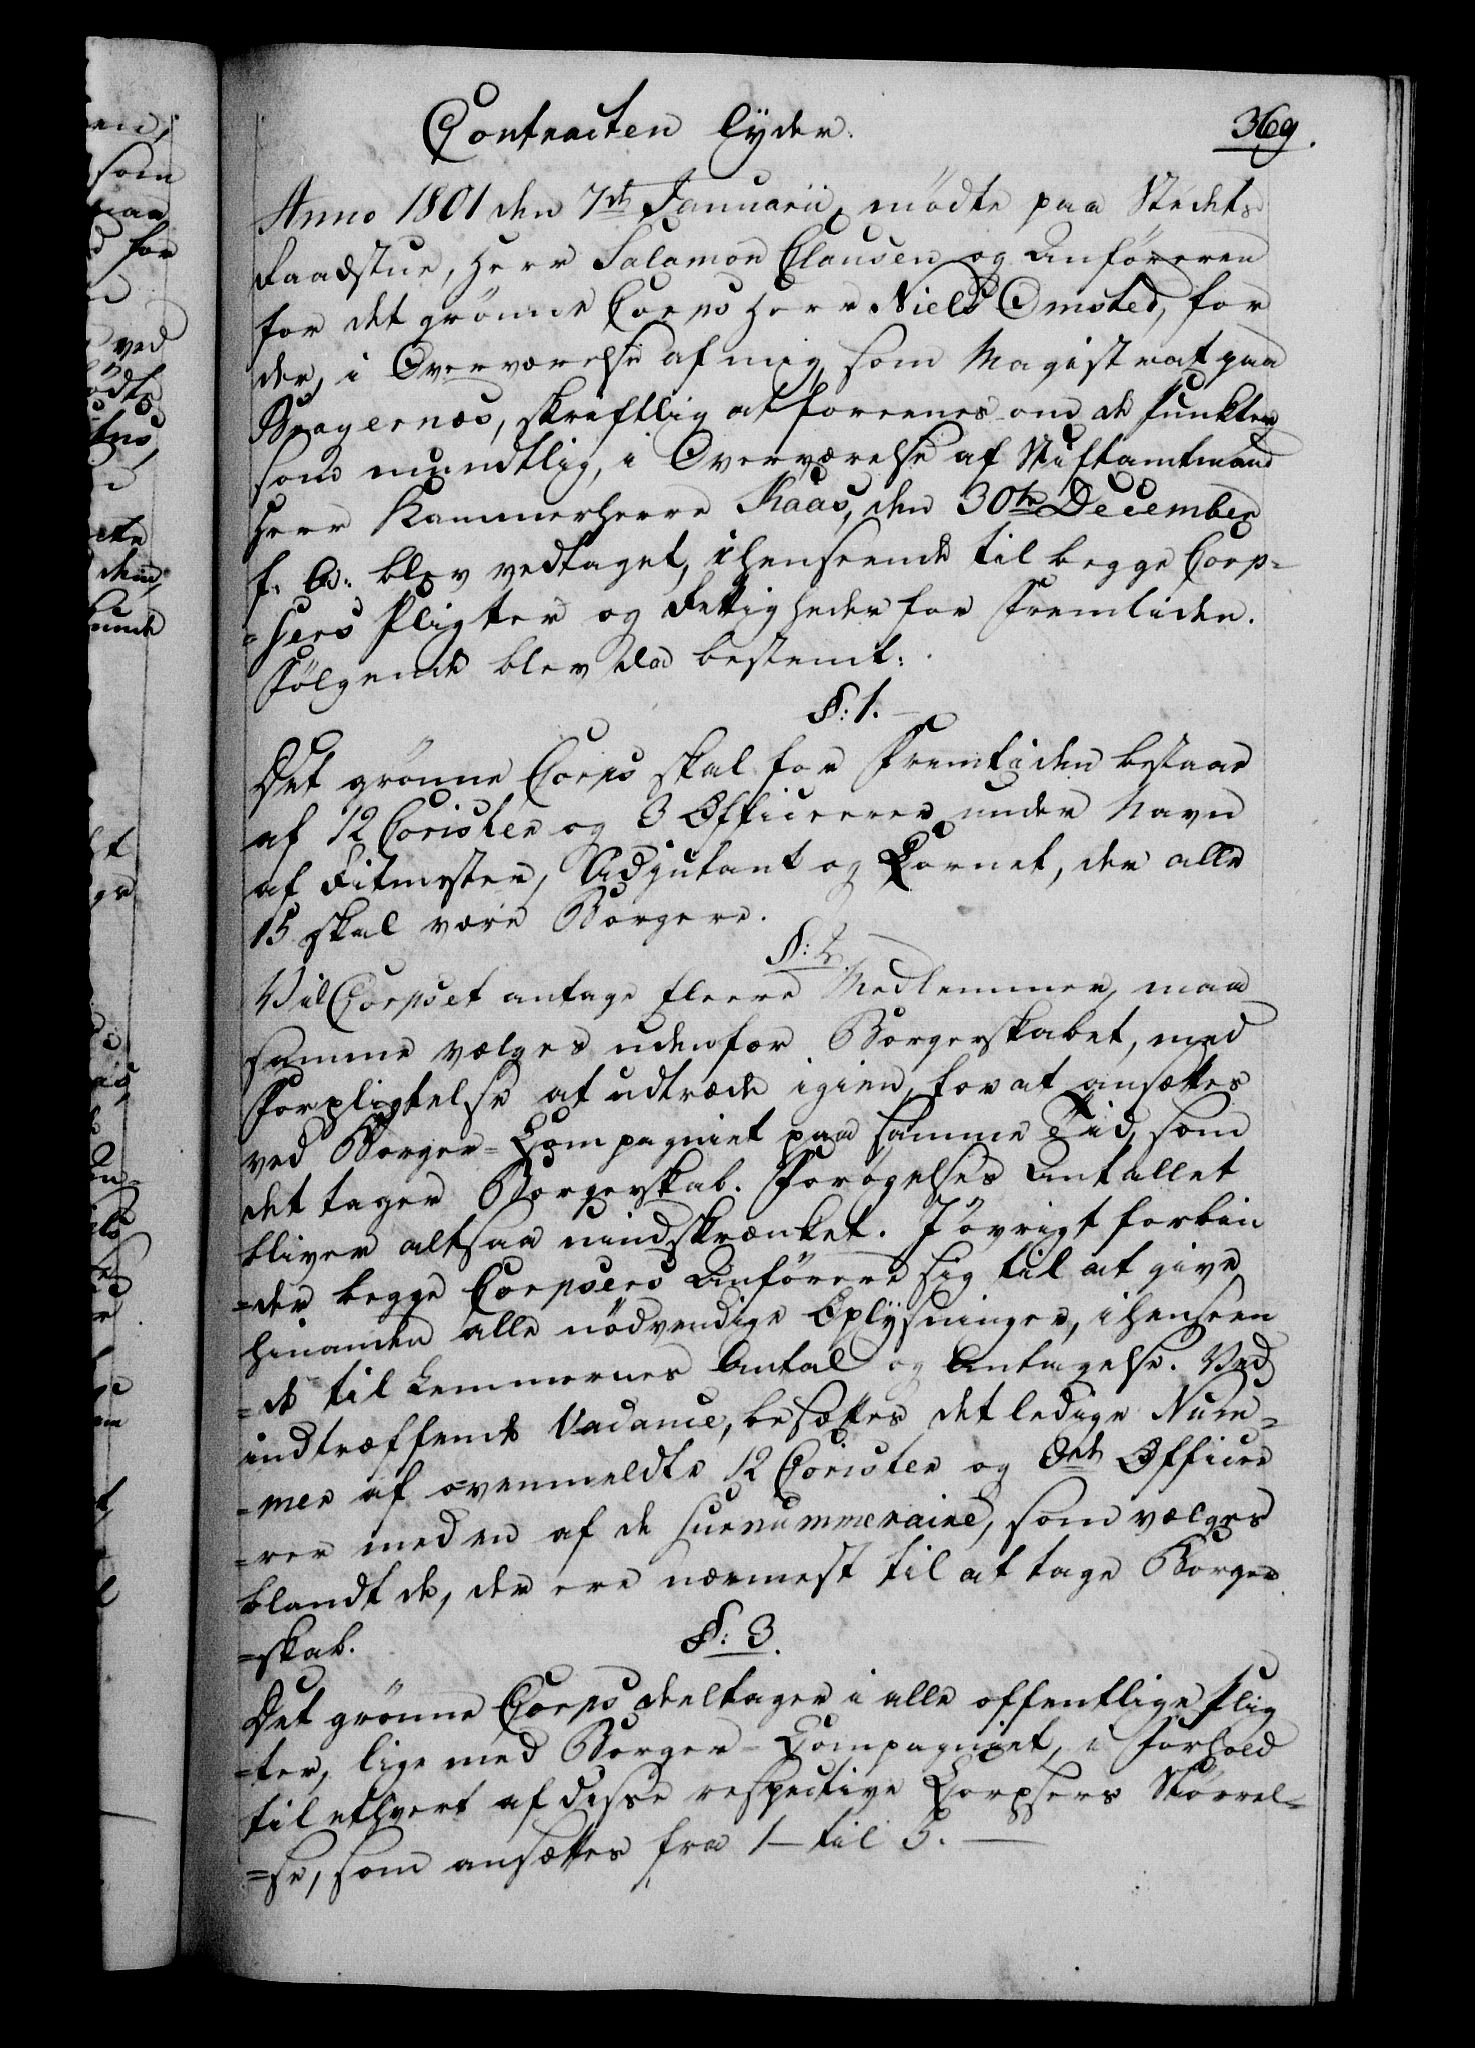 Contracten lyder.
369.
Anno 1801 den 7de Januarii, mødte paa Stedets
Raadstue, Herr Salamon Clausen og Anføreren
for det grønne Corps Herr Niels Omsted, for
der, i Overværelse af mig, som Magistrat paa
Bragernæs, skriftlig at foreenes om de Punkter
som mundtlig, i Overværelse af Stiftamtmand
Herr Kammerherre Kaas, den 30te December
f: A: blev vedtaget, i henseende til begge Corp-
=sers Pligter og Rettigheder for Fremtiden.
Følgende blev da bestemt:
§: 1.
Det grønne Corps skal for Fremtiden bestaae
af 12 Corister og 3 Officerer under Navn
af Ritmester, Adjutant og Cornet, der alle
15 skal være Borgere.
§: 2.
Vil Corpset antage fleere Medlemmer, maa
samme vælges udenfor Borgerskabet, med
Forpligtelse at udtræde igien, for at ansættes
ved Borger-Compagniet paa samme Tid, som
det tager Borgerskab. Forøgelses Antallet
bliver altsaa uindskrænket. I øvrigt forbin
=der begge Corpsers Anførere sig til at give
hinanden alle nødvendige Oplysninger, i henseen
=de til Lemmernes Antal og Antagelse. Ved
indtræffende Vacance, besættes det ledige Num-
=mer af ovenmeldte 12 Corister og 3de Office
=rer med en af de surnummeraire, som vælges
blandt de, der ere nærmest til at tage Borger
=skab.
§: 3.
Det grønne Corps deeltager i alle offentlige Plig
=ter, lige med Borger-Compagniet, i Forhold
til ethvert af disse respective Corpsers Størrel-
=se, som ansættes fra 1 til 5.